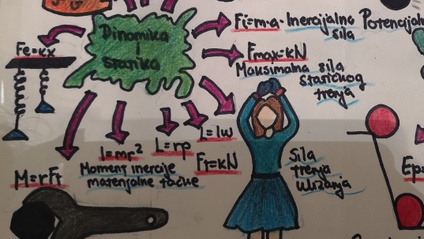 Dinamika
i
statika
Fi=m·a - Inercijalna
sila
Potencijaln
Fe=kx
Fmax=kN
Maksimalna sila
statičkog
trenja
I=mr²
Moment inercije
materijalne tačke
L=rp
L=Iω
Ft=kN
Sila
trenja
klizanja
M=rFt
Ep=